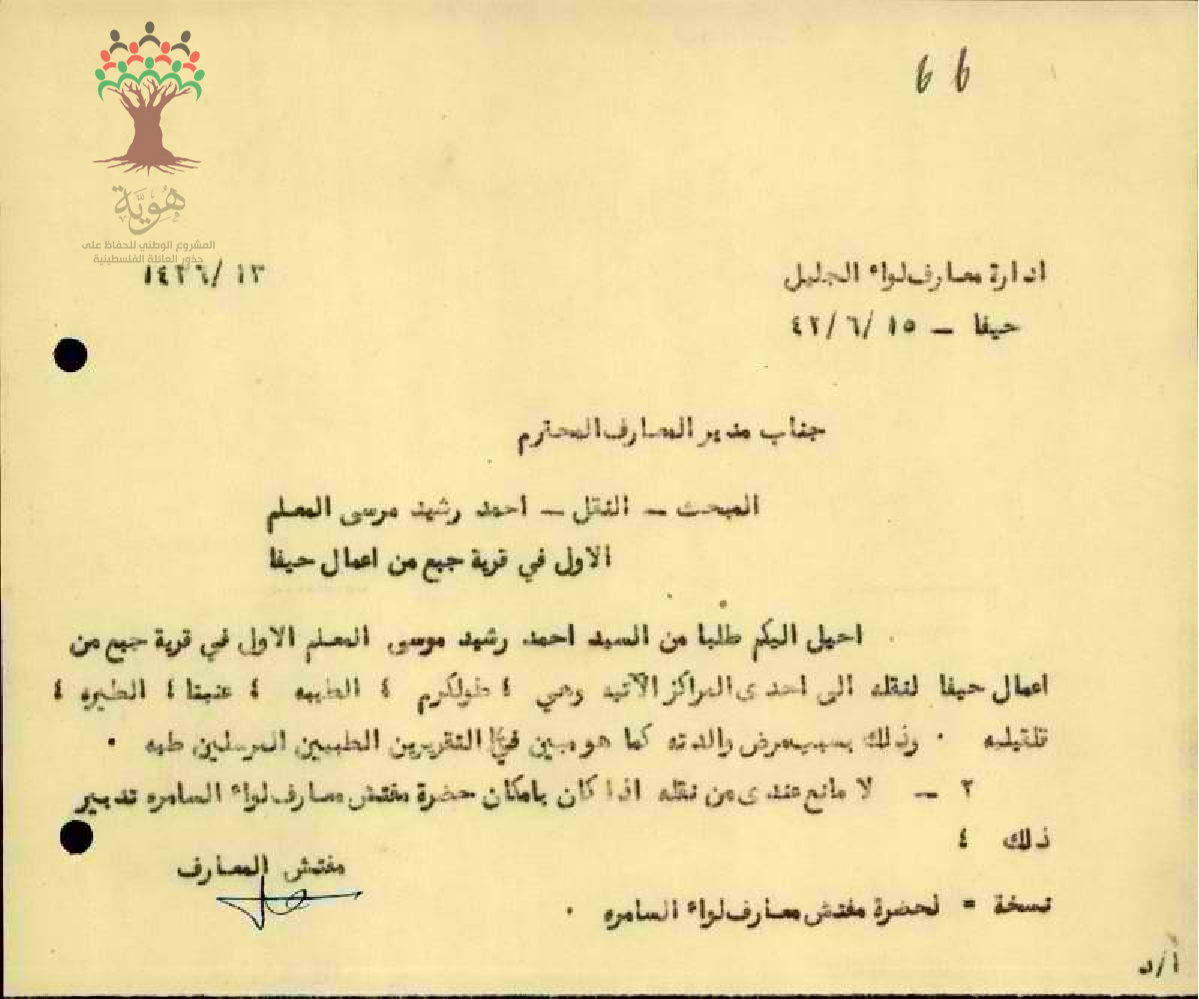 66
هُوِيَّة
المشروع الوطني للحفاظ على
جذور العائلة الفلسطينية
ادارة معارف لواء الجليل
١٣ /١٤٣٦
حيفا – ١٥ /٦ /٤٢
جناب مدير المعارف المحترم
المبحث – النقل – احمد رشيد مرسى المعلم
الاول في قرية جبع من اعمال حيفا
احيل اليكم طلبا من السيد احمد رشيد موسى المعلم الاول في قرية جبع من
اعمال حيفا لنقله الى احدى المراكز الآتيه وهي ٤ طولكرم ٤ الطيبه ٤ عنبتا ٤ الطيره ٤
قلقيليه ٠ وذلك بسبب مرض والدته كما هو مبين في التقريرين الطبيين المرسلين طيه ٠
٢ – لا مانع عندى من نقله اذا كان بامكان حضرة مفتش معارف لواء السامره تدبير
ذلك ٤
مفتش المعارف
نسخة = لحضرة مفتش معارف لواء السامره ٠
أ/د